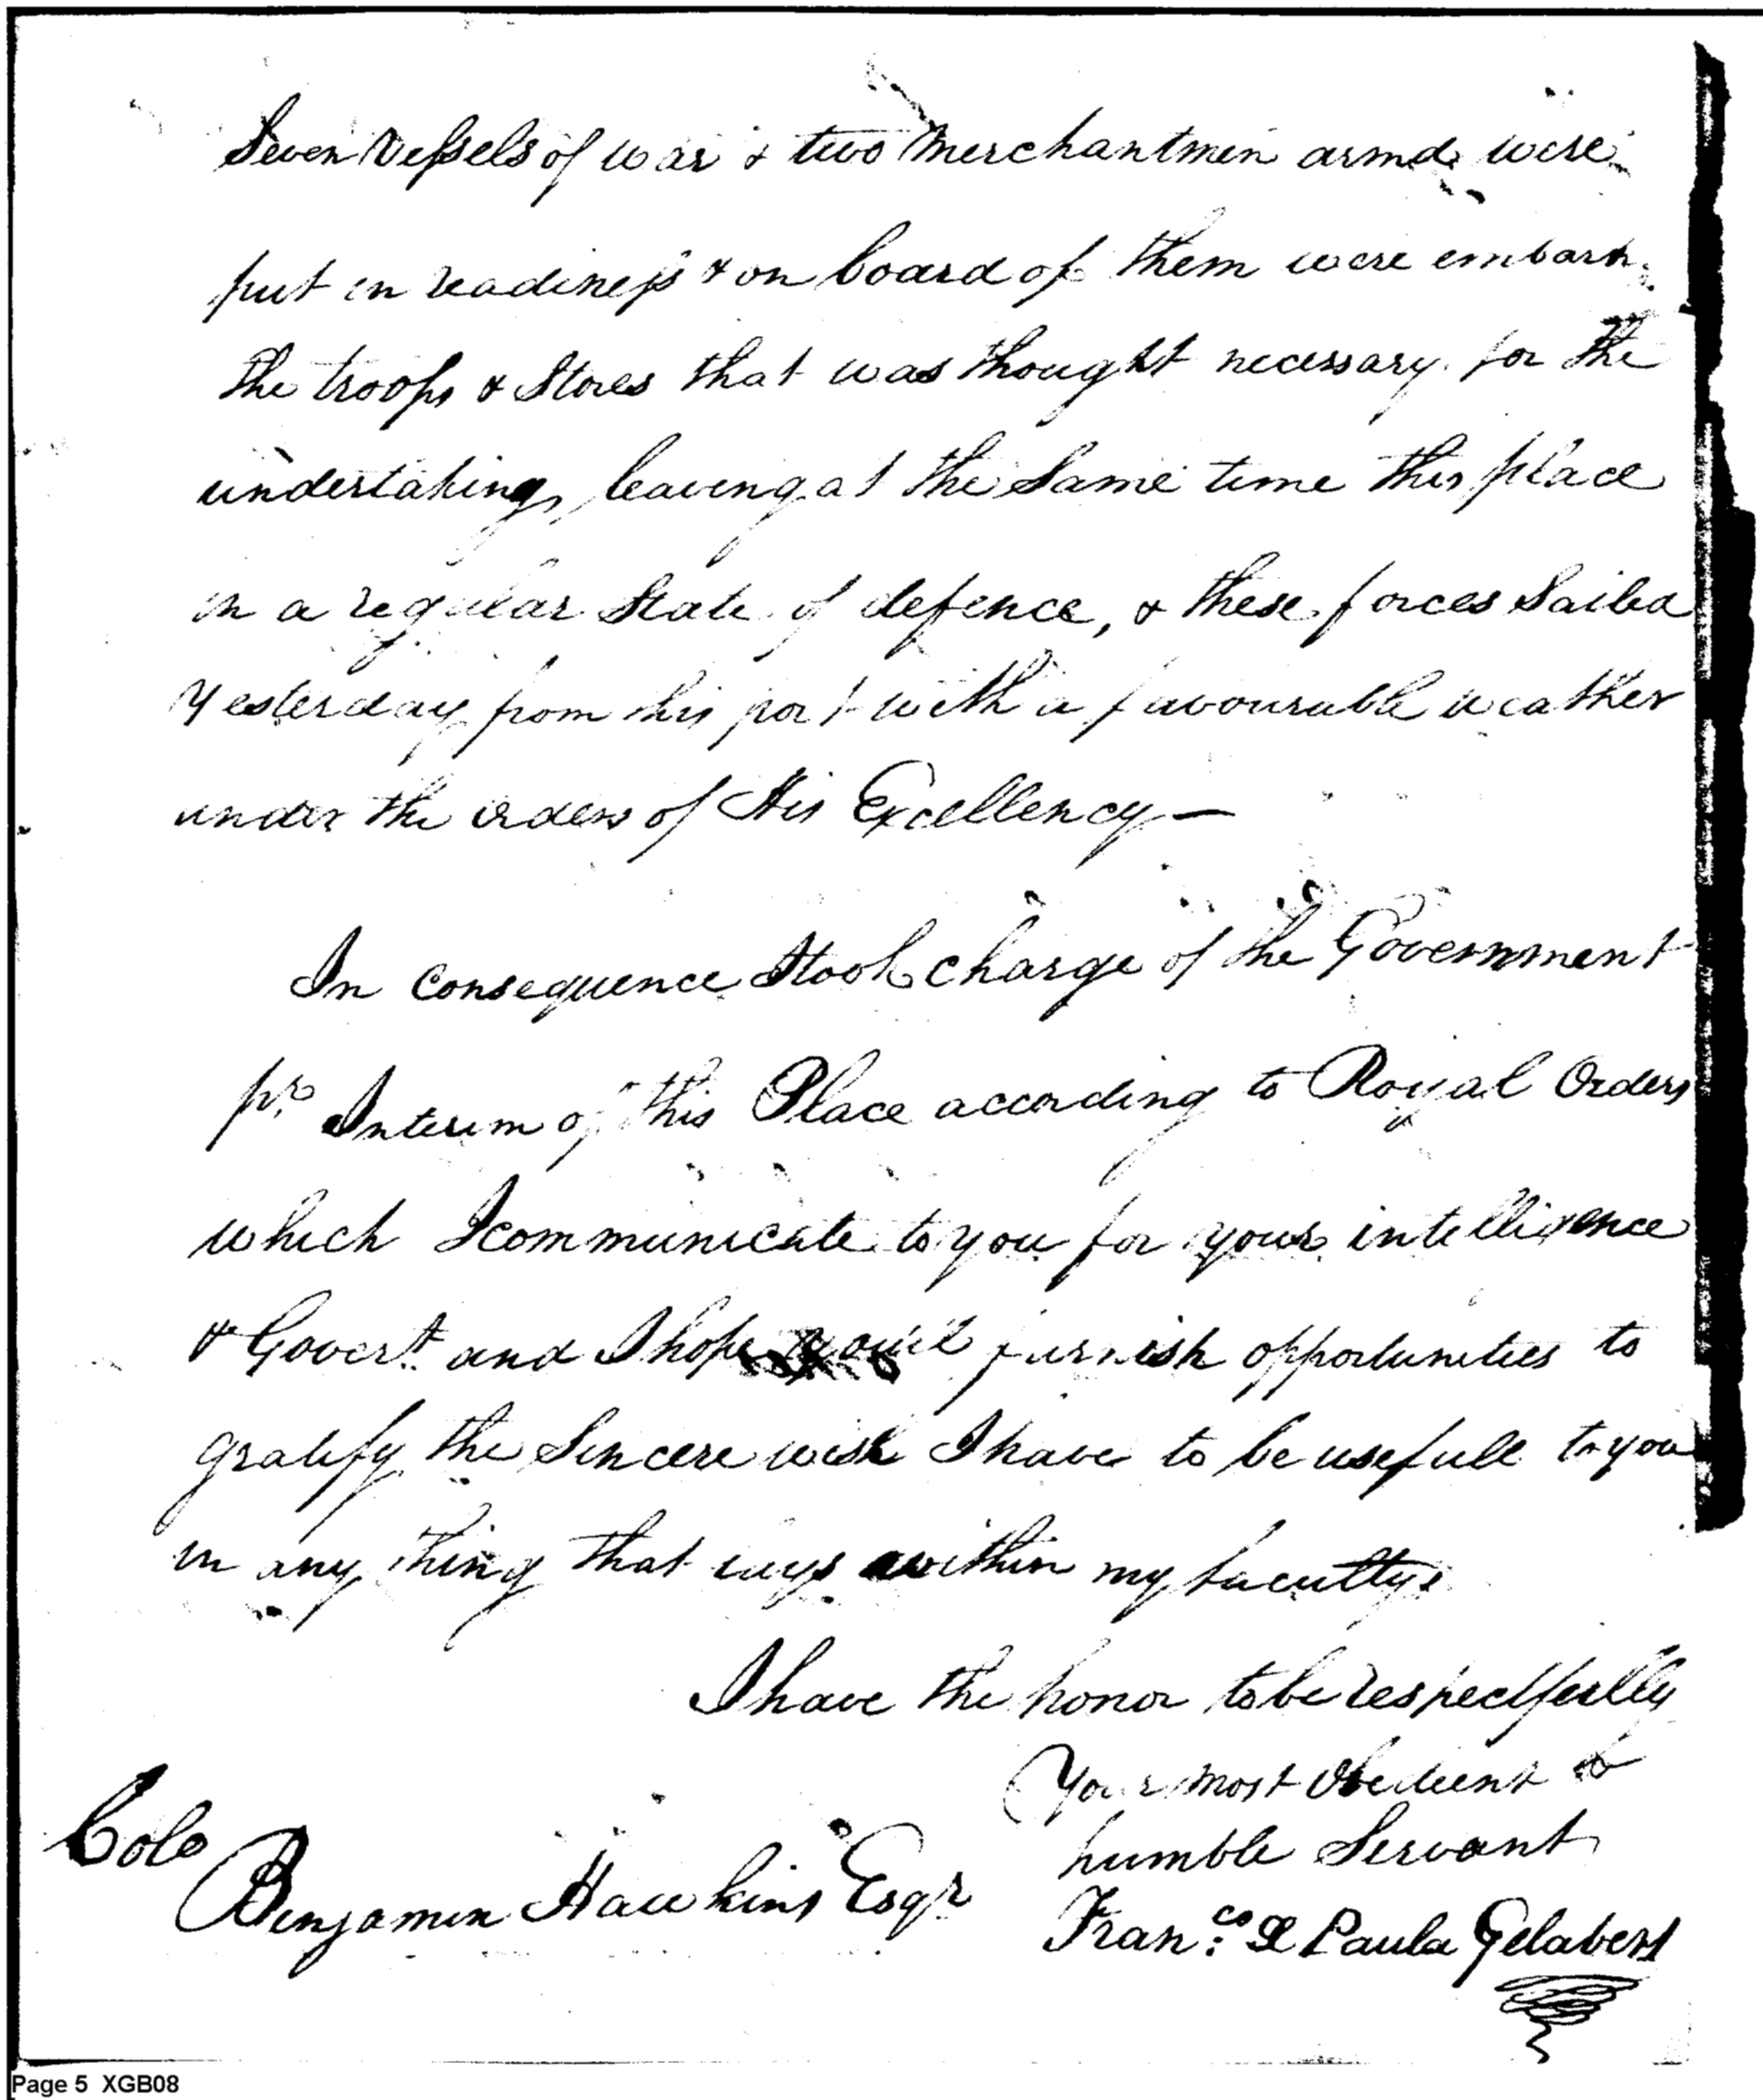 Seven Vessels of war & two Merchantmen armd were
put in readiness & on board of them were embark
the troops & Stores that was thought necessary for the
undertaking, leaving at the Same time this place
in a regular State of defence, & these forces Sailed
Yesterday from this port with a favourable weather
under the orders of His Excellency —
In Consequence I took charge of the Government
pro. Interim of this Place according to Royal Orders
which I communicate to you for your intelligence
& Govert. and I hope furnish opportunities to
gratify the Sincere wish I have to be usefull to you
in any thing that lays within my facultys
I have the honor to be respectfully
Your most Obedient &
humble Servant
Colo
Benjamin Hawkins Esqr
Fran:co De Paula Gelabert
Page 5 XGB08